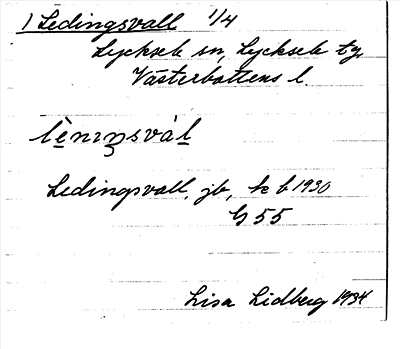 1) Ledingsvall 1/4
Lycksele sn, Lycksele tg,
Västerbottens l.
lèniŋsvàl
Ledingsvall, jb, kb 1930
G 55
Lisa Lidberg 1934